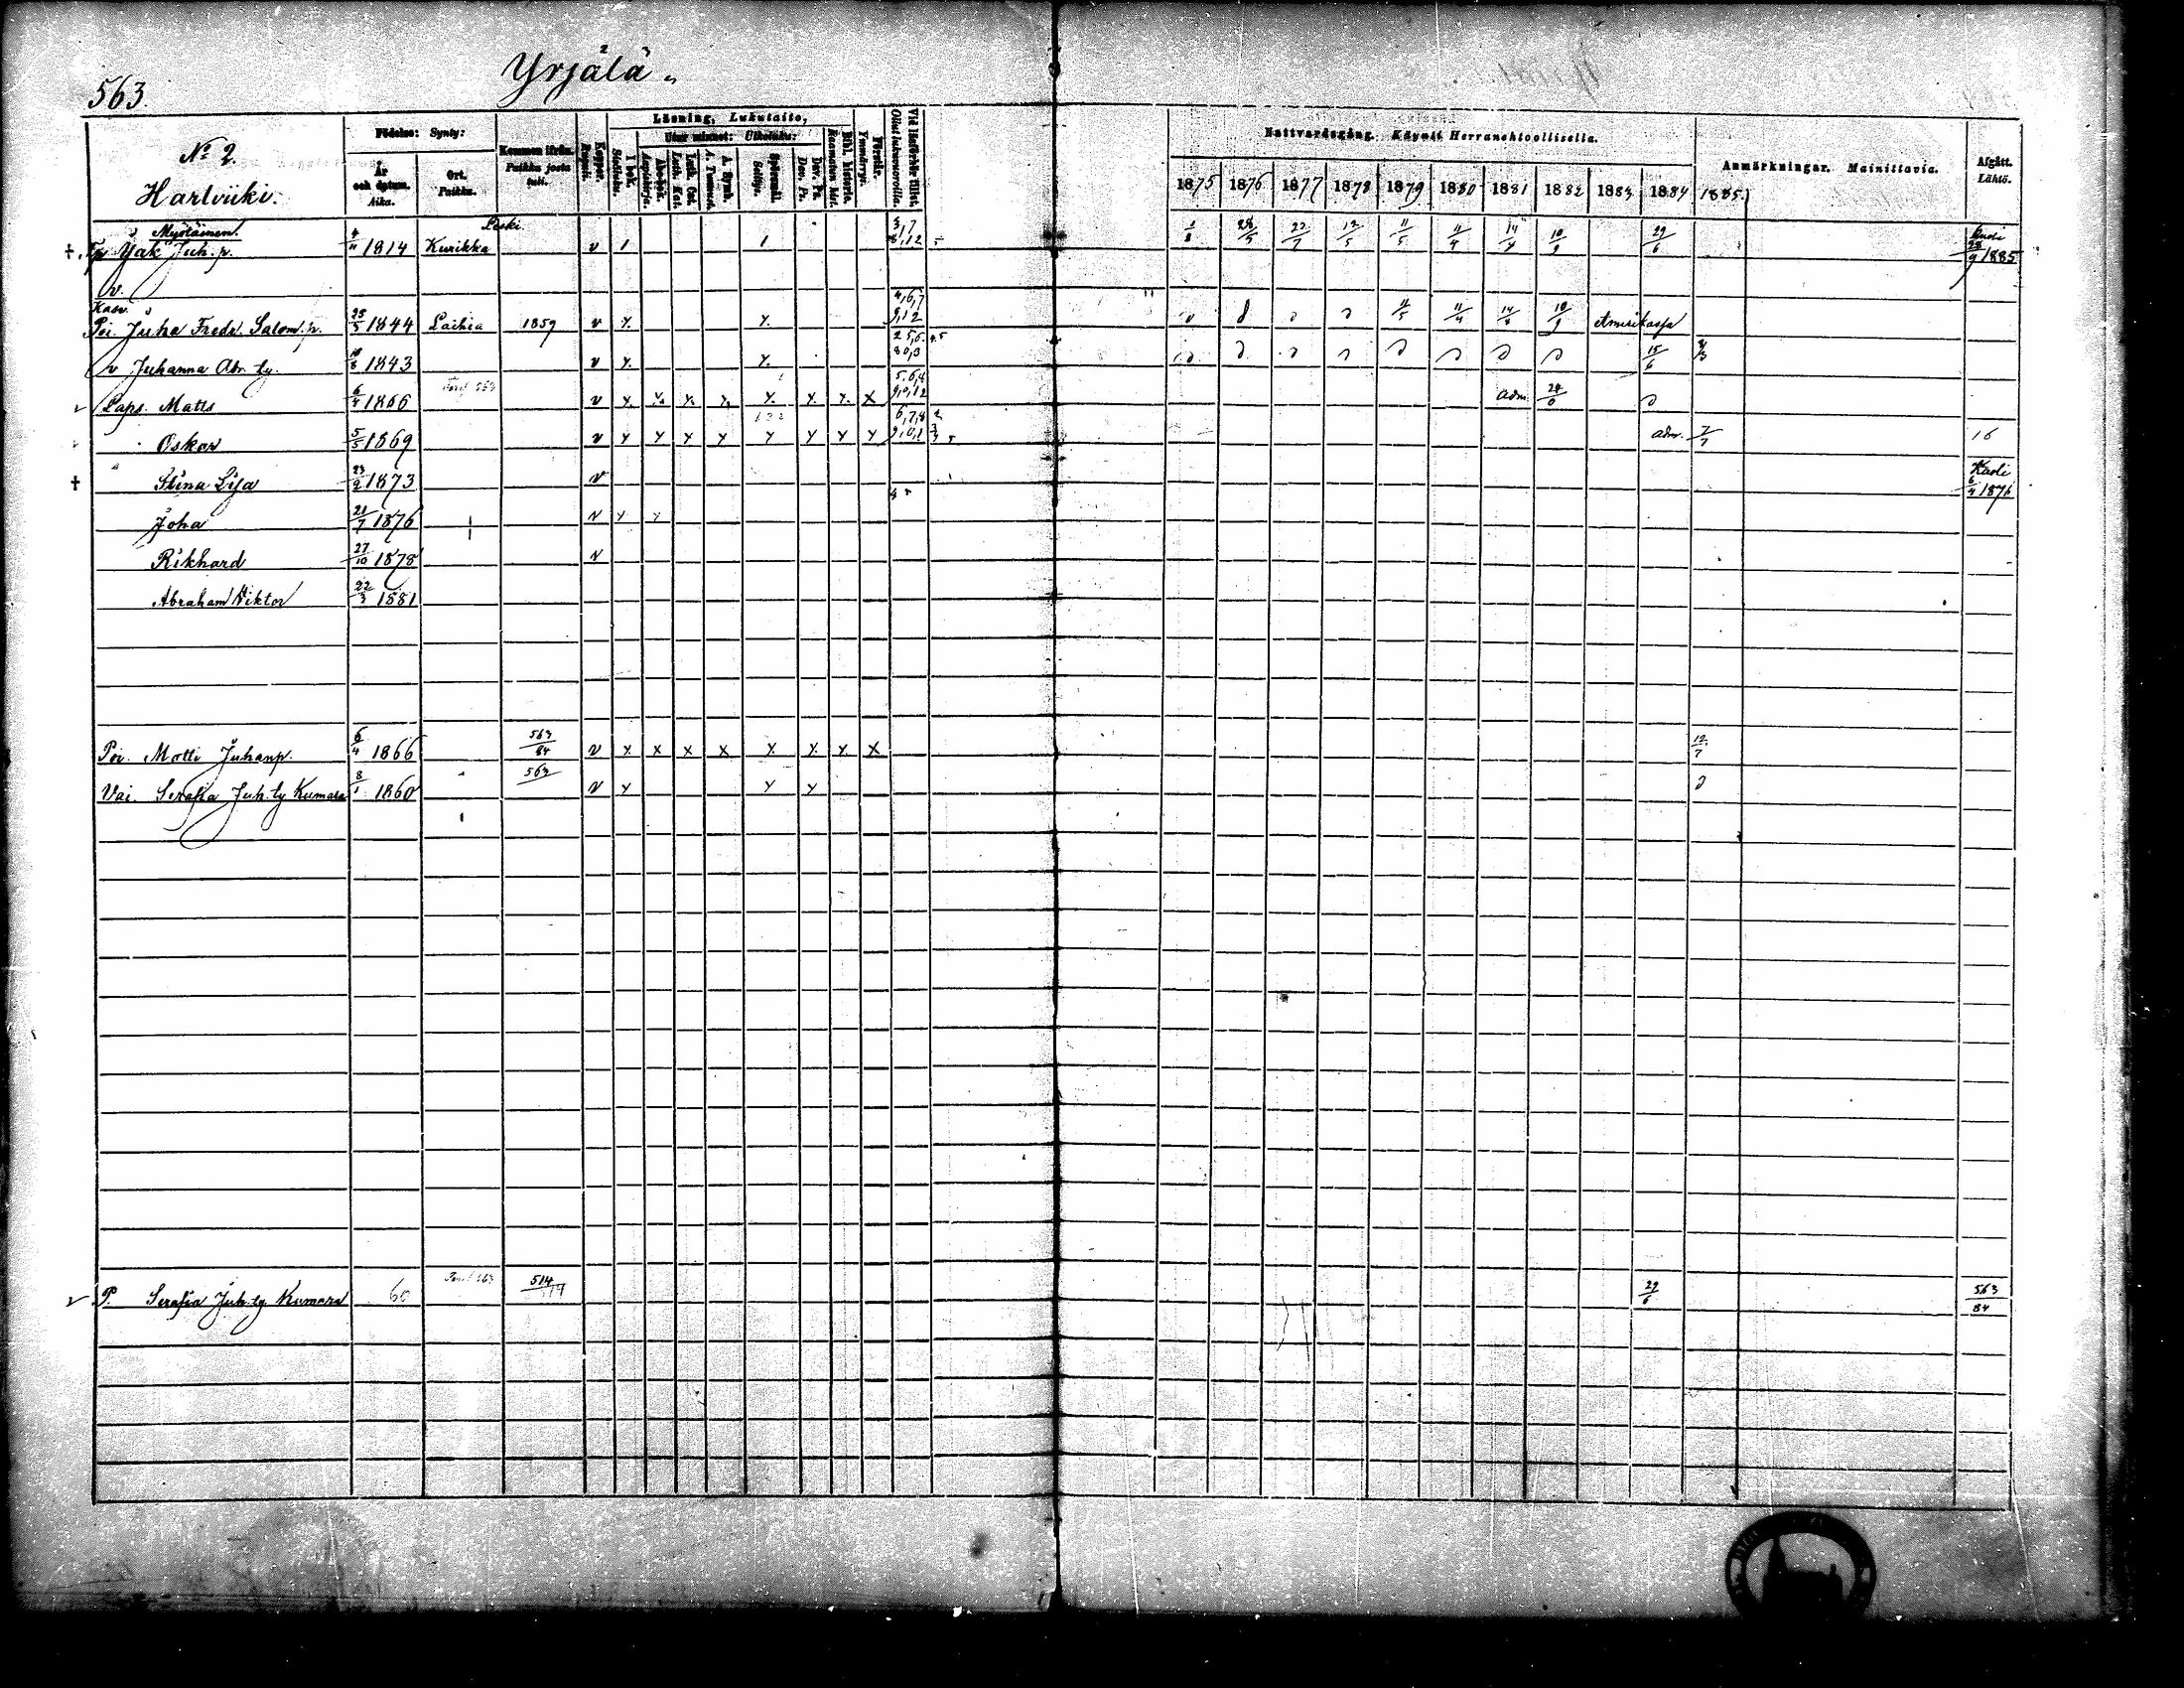 563.
Yrjälä.
Nº 2.
Harlviiki.
Födelse: Synty:
År och datum. Aika.
Ort. Paikka.
Kommen ifrån. Paikka josta tuli.
Koppor. Rupuli.
Läsning, Lukutaito,
I bok. Sisäluku.
Utur minnet: Ulkoluku:
Abc-bok. Aapiskirja.
Luth. Cat. Luth. Kat.
A. Symb. A. Tunnust.
Spörsmål. Selitys.
Dav. Ps. Dav. Ps.
Bibl. historia. Raamatun hist.
Förstår. Ymmärrys.
Vid läsförhör tillst. Ollut lukuvuorolla.
Nattvardsgång. Käynti Herranehtoollisella.
1875 1876 1877 1878 1879 1880 1881 1882 1883 1884 1885.
Anmärkningar. Mainittavia.
Afgått. Lähtö.
Myötäinen. Leski
† Yak Juh. p. 4/11 1814 Kurikka v 1 1 3,7 8,12 1/8 28/5 22/7 12/5 11/5 11/4 14/4 10/9 29/6 Kuoli 28/9 1885
v.
Kasv.
Poi. Juha Fredr. Salom. p. 25/5 1844 Laihia 1859 v Y. Y. 4,6,7 9,12 11/5 11/4 14/4 10/9 Amerikassa
v Juhanna Abr. ty. 1843 v Y. Y. 15/6
Laps. Matts 6/4 1866 v Y. Y. Y. Y. Y. Y. Y. X 5,6,8 9,0,12 adm.
Oskar 5/5 1869 v Y Y Y Y Y Y Y Y 6,7,8 9,0,1 adm. 7/7 16
† Stina Lisa 23/2 1873 v Kuoli 6/4 1876
Joha 21/7 1876 v Y Y
Rikhard 27/10 1878 v
Abraham Viktor 22/3 1881
Poi. Motti Juhanp. 6/4 1866 563/84 v X X X X Y. Y. Y. X 12/7
Vai. Serafia Juh. ty Kumara 8/1 1860 563 v Y Y Y
P. Serafia Juh. ty. Kumara 60 514 29/6 563/84